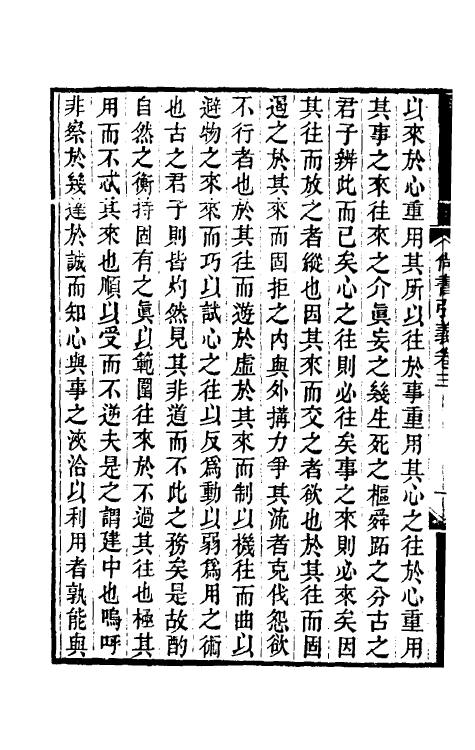 尚書引義卷三
以來於心重用其所以往於事重用其心之往於心重用
其事之來往來之介眞妄之幾生死之樞舜跖之分古之
君子辨此而已矣心之往則必往矣事之來則必來矣因
其往而放之者縱也因其來而交之者欲也於其往而固
遏之於其來而固拒之內與外搆力爭其流者克伐怨欲
不行者也於其往而遊於虛於其來而制以機往而曲以
避物之來來而巧以試心之往以反爲動以弱爲用之術
也古之君子則皆灼然見其非道而不此之務矣是故酌
自然之衡持固有之眞以範圍往來於不過其往也極其
用而不忒其來也順以受而不逆夫是之謂建中也嗚呼
非察於幾達於誠而知心與事之浹洽以利用者孰能與